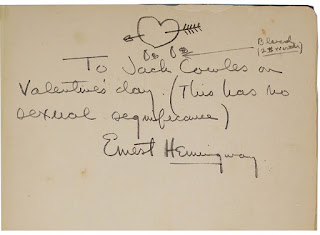 To Jack Cowles on
Valentine's day. (This has no
sexual segnificance)
Ernest Hemingway